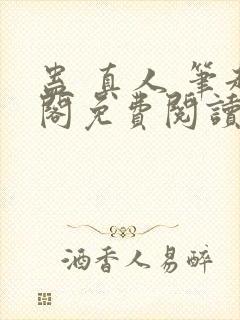 蛊真人筆趣
閣免費閱讀
酒香人易醉